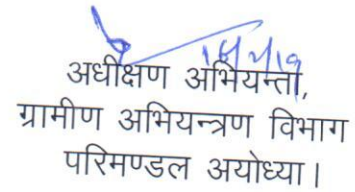 अधीक्षण अभियन्ता,
ग्रामीण अभियन्त्रण विभाग
परिमण्डल अयोध्या।